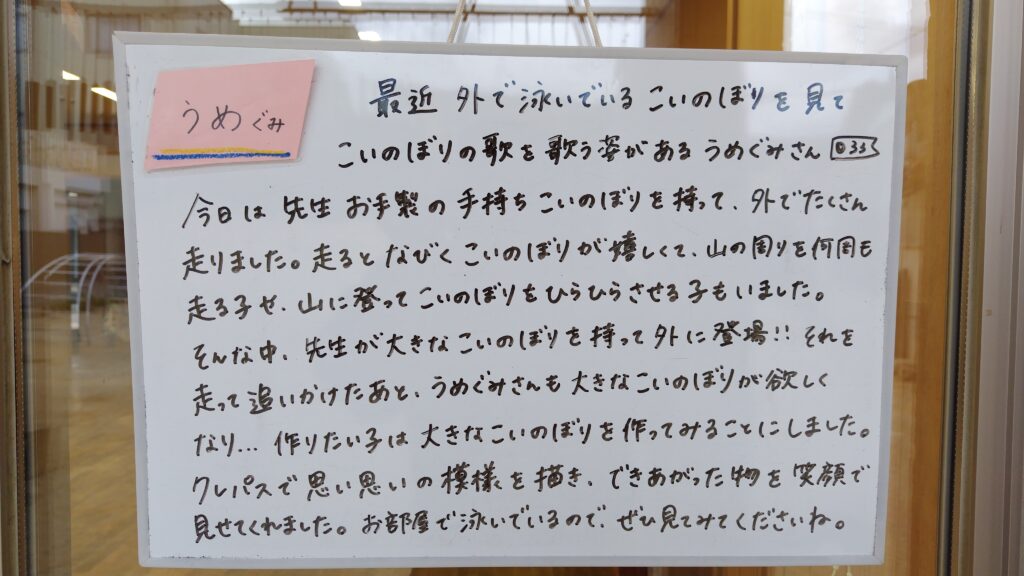 うめぐみ
最近 外で泳いでいる こいのぼりを見て
こいのぼりの歌を歌う姿がある うめぐみさん
今日は 先生 お手製の 手持ち こいのぼりを 持って、外でたくさん
走りました。走ると なびく こいのぼりが 嬉しくて、山の周りを何周も
走る子や、山に登って こいのぼりを ひらひらさせる子も いました。
そんな中、先生が大きな こいのぼりを 持って 外に 登場!! それを
走って 追いかけたあと、うめぐみさんも 大きなこいのぼりが 欲しく
なり... 作りたい子は 大きなこいのぼりを 作ってみることにしました。
クレパスで 思い思いの 模様を 描き、できあがった物を 笑顔で
見せてくれました。お部屋で泳いでいるので、ぜひ見てみてくださいね。